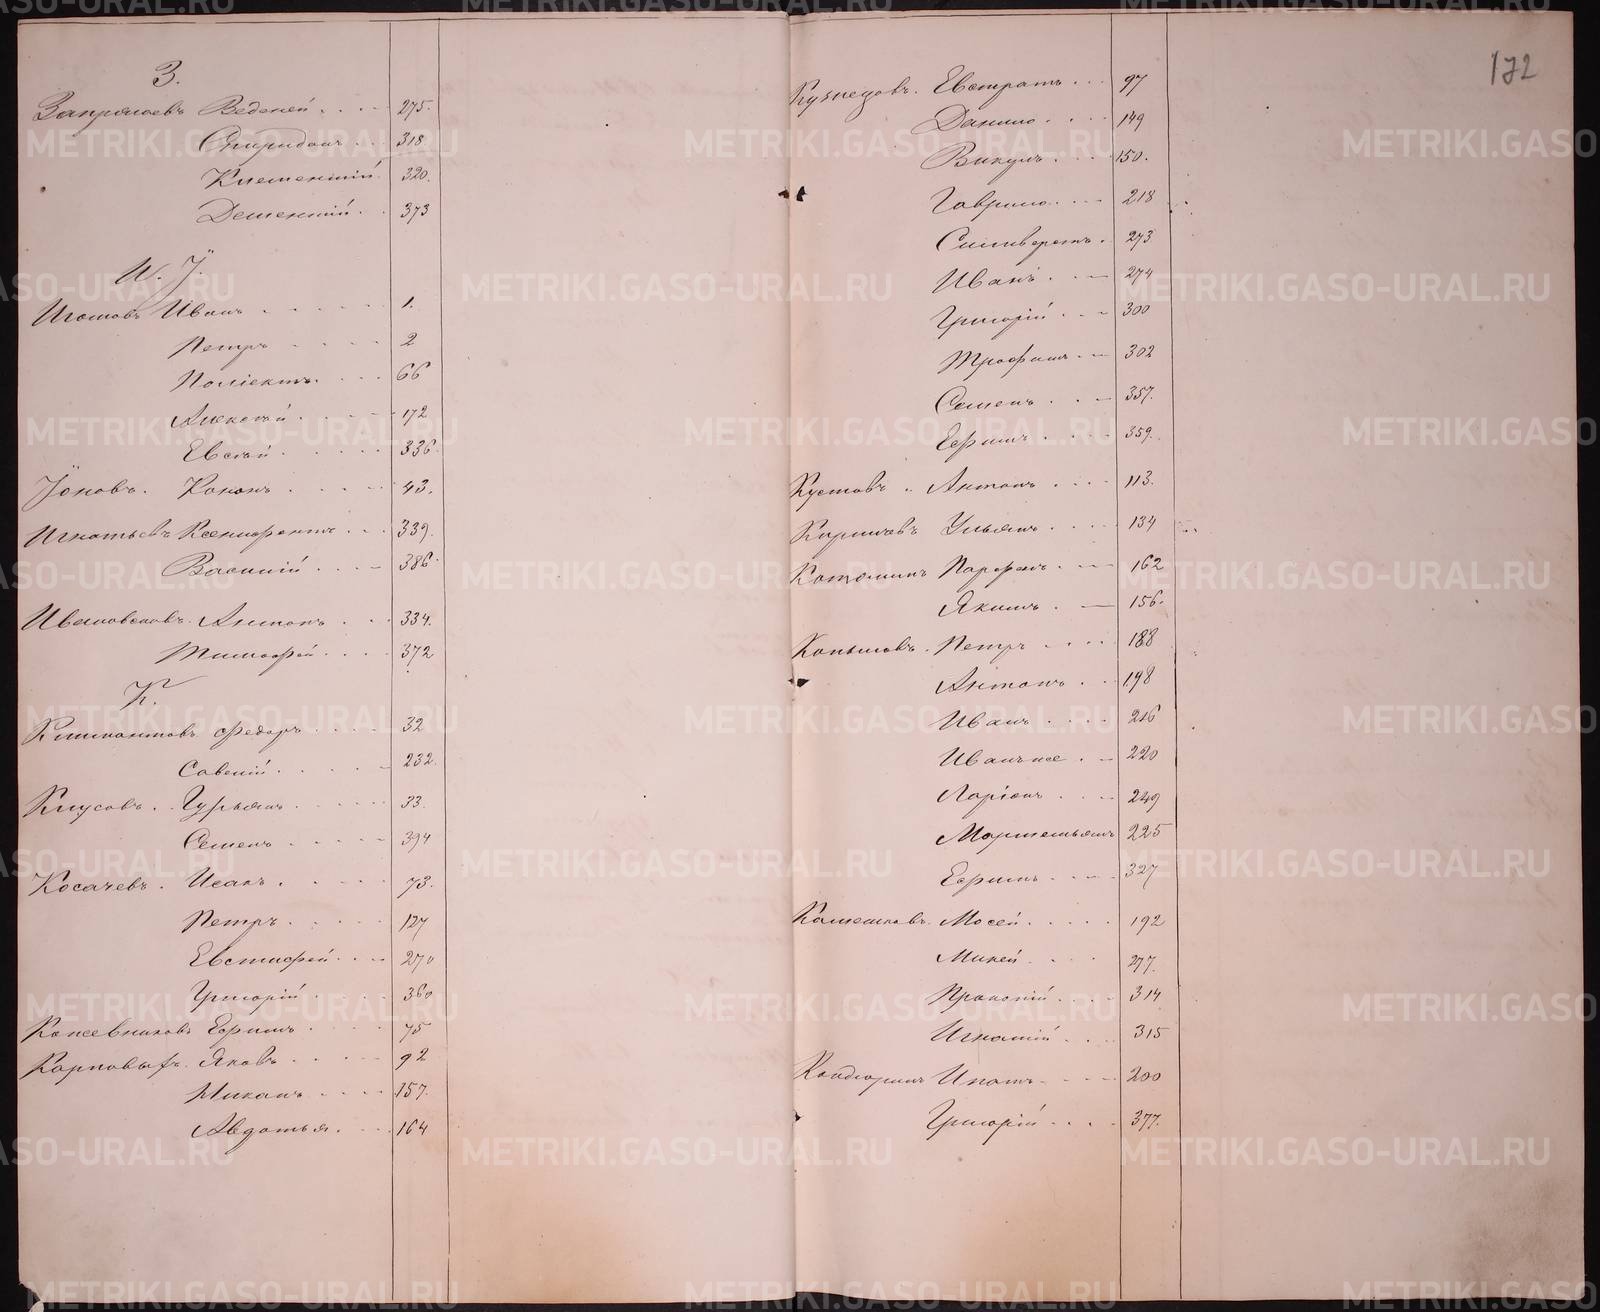 З.
Запрягаевъ Веденей 275.
Спиридонъ 318
Климентій 320.
Дементій 373
И. І.
Изотовъ Иванъ 1.
Петръ 2
Поліектъ 66
Алексѣй 172
Евсѣй 336.
Іоновъ. Кононъ 43.
Игнатьевъ Ксенофонтъ 339.
Василій 386.
Ивановсковъ. Антонъ 334.
Тимофей 372
К.
Климонтовъ Федоръ 32
Савелій 232.
Клусовъ. Гурьянъ 33.
Семенъ 394
Косачевъ. Исакъ 73.
Петръ 127
Евстифей 270
Григорій 360
Кожевниковъ Ефимъ 75
Карповыхъ. Яковъ 92
Никонъ 157.
Авдотья. 164
172
Кузнецовъ. Евстратъ 97
Данило 149
Викулъ 150.
Гаврило 218
Силиверстъ. 273
Иванъ 274
Григорій 300
Трофимъ 302
Семенъ 357.
Ефимъ 359.
Кустовъ. Антонъ 113.
Киричевъ Ульянъ 134
Парфенъ 162
Якимъ 156.
Копыловъ. Петръ 188
Антонъ 198
Иванъ 216
Иванъ же 220
Ларіонъ 249
Мартемьянъ 225
Ефимъ 327
Калешковъ. Мосей 192
Микей 277.
Прокопій 314
Игнатій 315
Кандюринъ Ипатъ 200
Григорій 377.